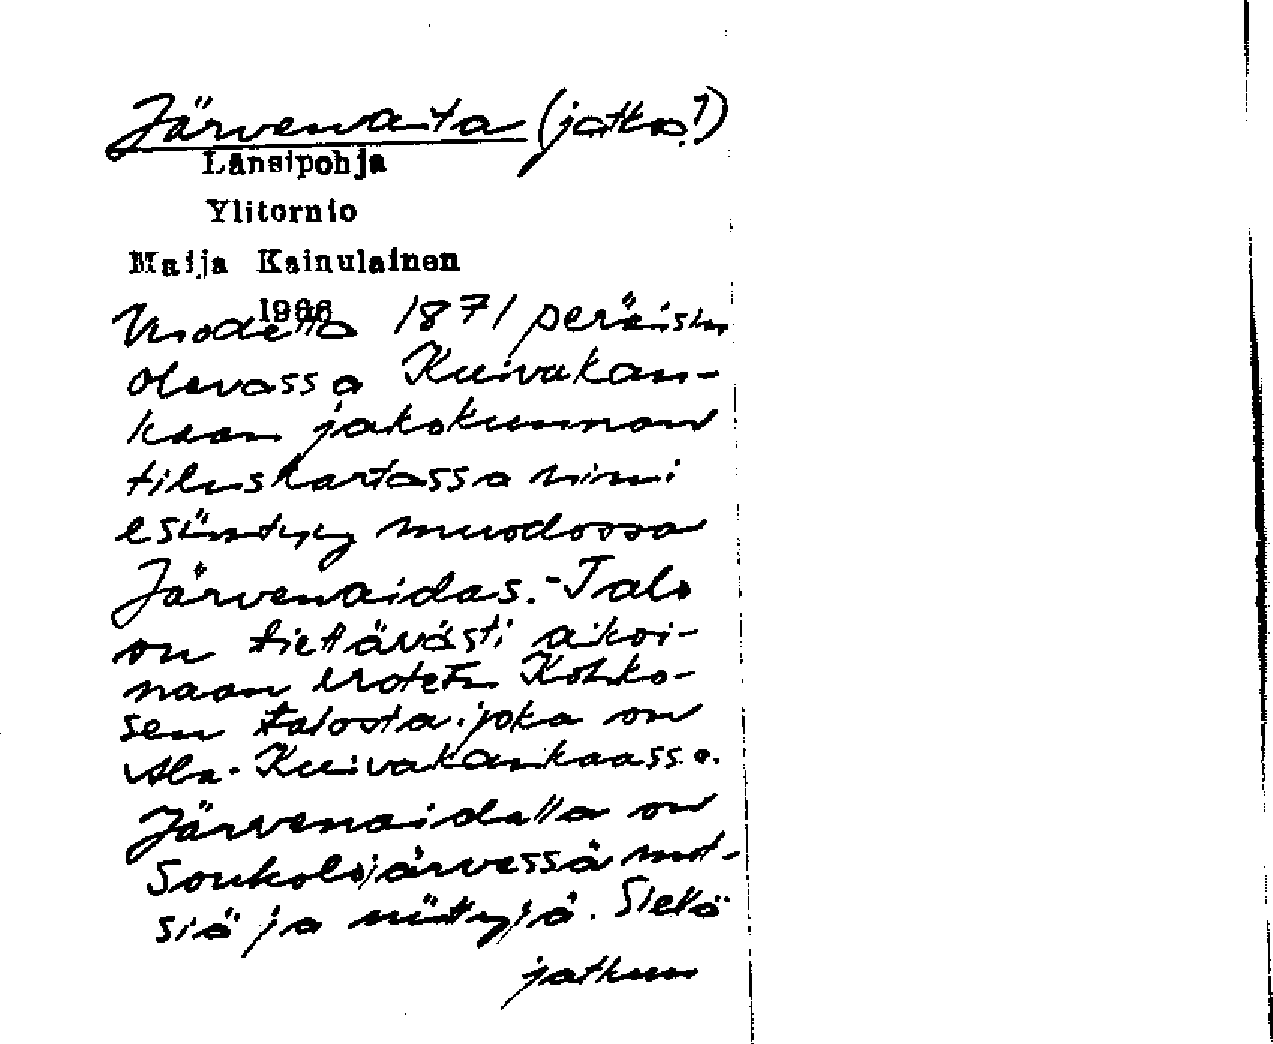 Järvenaita (jatko!)
Länsipohja
Ylitornio
Maija Kainulainen
1966
Vuodelta 1871 peräisin
olevassa Kuivakan-
kaan jakokunnan
tiluskartassa nimi
esiintyy muodossa
Järvenaidas. - Talo
on tiettävästi aikoi-
naan erotettu Kohko-
sen talosta, joka on
Ala-Kuivakankaassa.
Järvenaidalla on
Soukolojärvessä met-
siä ja niittyjä. Sieltä
jatkuu